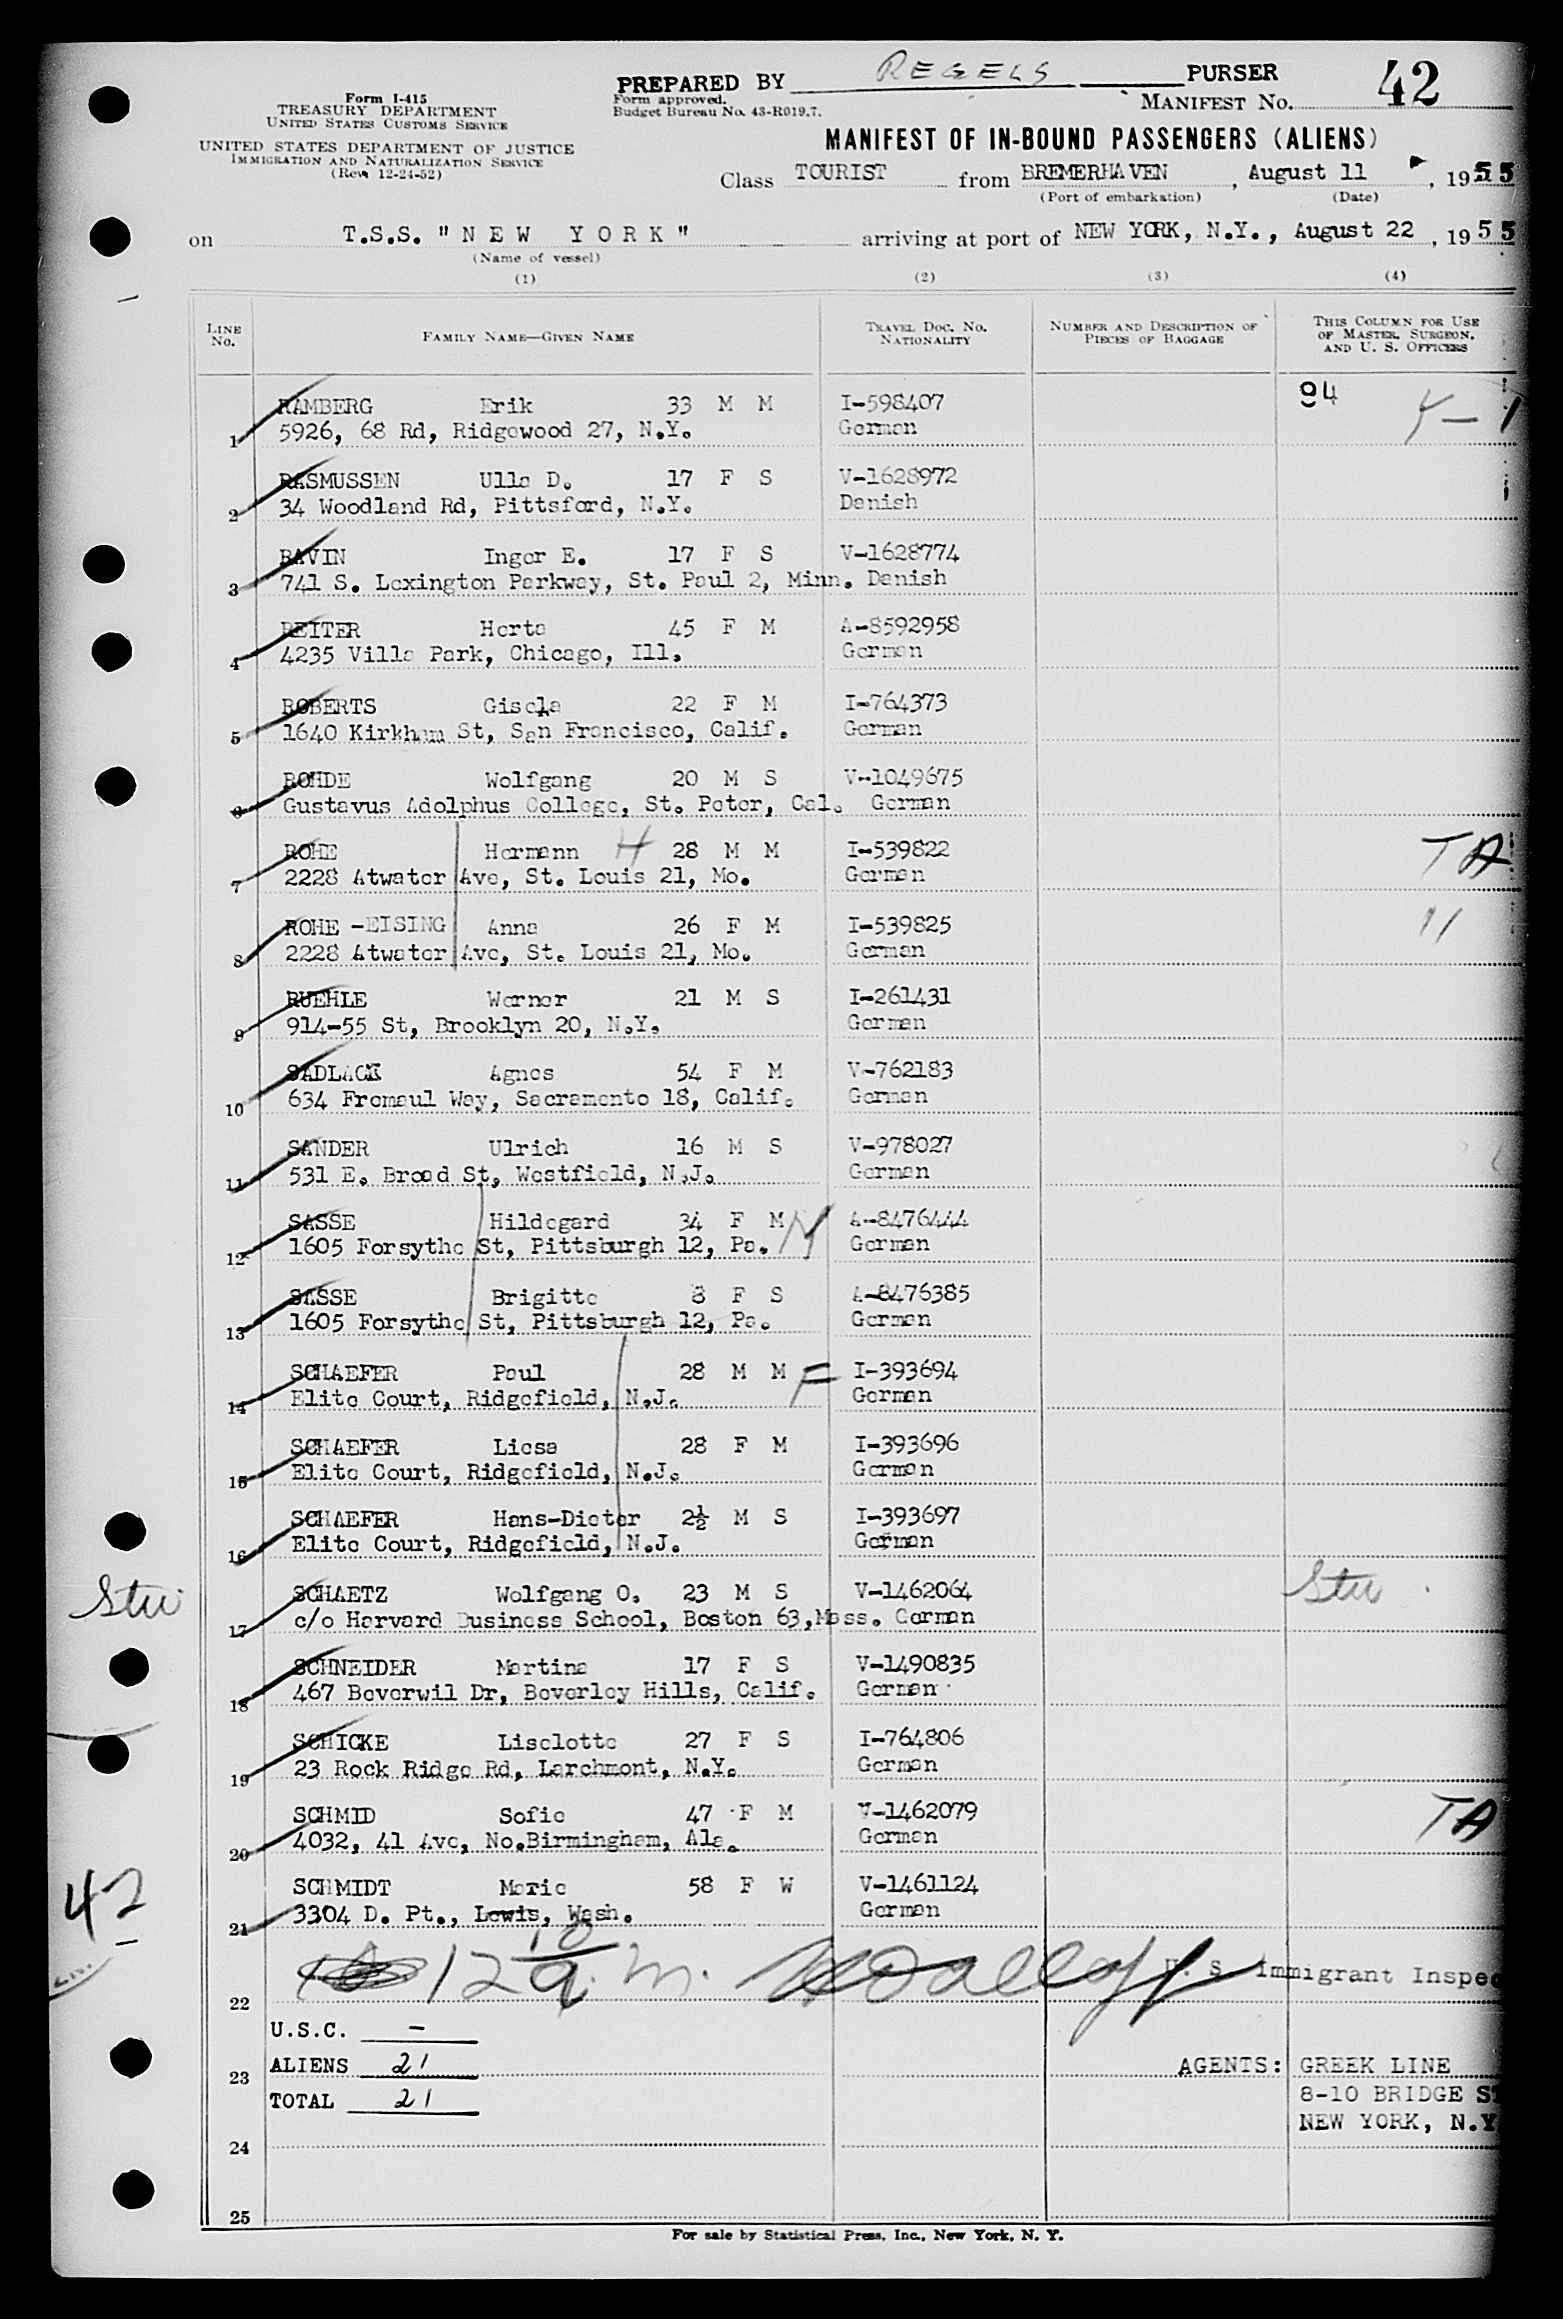 PREPARED BY REGELS PURSER
Form approved.
Budget Bureau No. 43-R019.7.
MANIFEST No. 42
Form I-415
TREASURY DEPARTMENT
UNITED STATES CUSTOMS SERVICE
UNITED STATES DEPARTMENT OF JUSTICE
IMMIGRATION AND NATURALIZATION SERVICE
(Rev. 12-24-52)
MANIFEST OF IN-BOUND PASSENGERS (ALIENS)
Class TOURIST from BREMERHAVEN, August 11, 1955
(Port of embarkation) (Date)
on T.S.S. "NEW YORK" arriving at port of NEW YORK, N.Y., August 22, 1955
(Name of vessel)
(1) (2) (3) (4)
LINE No. FAMILY NAME—GIVEN NAME TRAVEL DOC. No. NATIONALITY NUMBER AND DESCRIPTION OF PIECES OF BAGGAGE THIS COLUMN FOR USE OF MASTER, SURGEON, AND U. S. OFFICERS
RAMBERG Erik 33 M M I-598407 94
1 5926, 68 Rd, Ridgewood 27, N.Y. German
RASMUSSEN Ulla D. 17 F S V-1628972
2 34 Woodland Rd, Pittsford, N.Y. Danish
RAVIN Inger E. 17 F S V-1628774
3 741 S. Lexington Parkway, St. Paul 2, Minn. Danish
REITER Herta 45 F M A-8592958
4 4235 Villa Park, Chicago, Ill. German
ROBERTS Gisela 22 F M I-764373
5 1640 Kirkham St, San Francisco, Calif. German
ROHDE Wolfgang 20 M S V-1049675
6 Gustavus Adolphus College, St. Peter, Cal. German
ROHE Hermann H 28 M M I-539822 TA
7 2228 Atwater Ave, St. Louis 21, Mo. German
ROHE -EISING Anna 26 F M I-539825 "
8 2228 Atwater Ave, St. Louis 21, Mo. German
RUEHLE Werner 21 M S I-261431
9 914-55 St, Brooklyn 20, N.Y. German
SADLACK Agnes 54 F M V-762183
10 634 Fremaul Way, Sacramento 18, Calif. German
SANDER Ulrich 16 M S V-978027
11 531 E. Broad St, Westfield, N.J. German
SASSE Hildegard 34 F M A-8476444
12 1605 Forsythe St, Pittsburgh 12, Pa. German
SASSE Brigitte 8 F S A-8476385
13 1605 Forsythe St, Pittsburgh 12, Pa. German
SCHAEFER Paul 28 M M F I-393694
14 Elite Court, Ridgefield, N.J. German
SCHAEFER Liesa 28 F M I-393696
15 Elite Court, Ridgefield, N.J. German
SCHAEFER Hans-Dieter 2½ M S I-393697
16 Elite Court, Ridgefield, N.J. German
Stu SCHAETZ Wolfgang O. 23 M S V-1462064 Stu
17 c/o Harvard Business School, Boston 63, Mass. German
SCHNEIDER Martina 17 F S V-1490835
18 467 Beverwil Dr, Beverley Hills, Calif. German
SCHICKE Liselotte 27 F S I-764806
19 23 Rock Ridge Rd, Larchmont, N.Y. German
SCHMID Sofie 47 F M V-1462079 TA
20 4032, 41 Ave, No.Birmingham, Ala. German
42 SCHMIDT Marie 58 F W V-1461124
21 3304 D. Pt., Lewis, Wash. German
12 10 a.m. U. S. Immigrant Inspec
22
U.S.C. -
23 ALIENS 21 AGENTS: GREEK LINE
TOTAL 21 8-10 BRIDGE ST
NEW YORK, N.Y
24
25
For sale by Statistical Press, Inc., New York, N. Y.